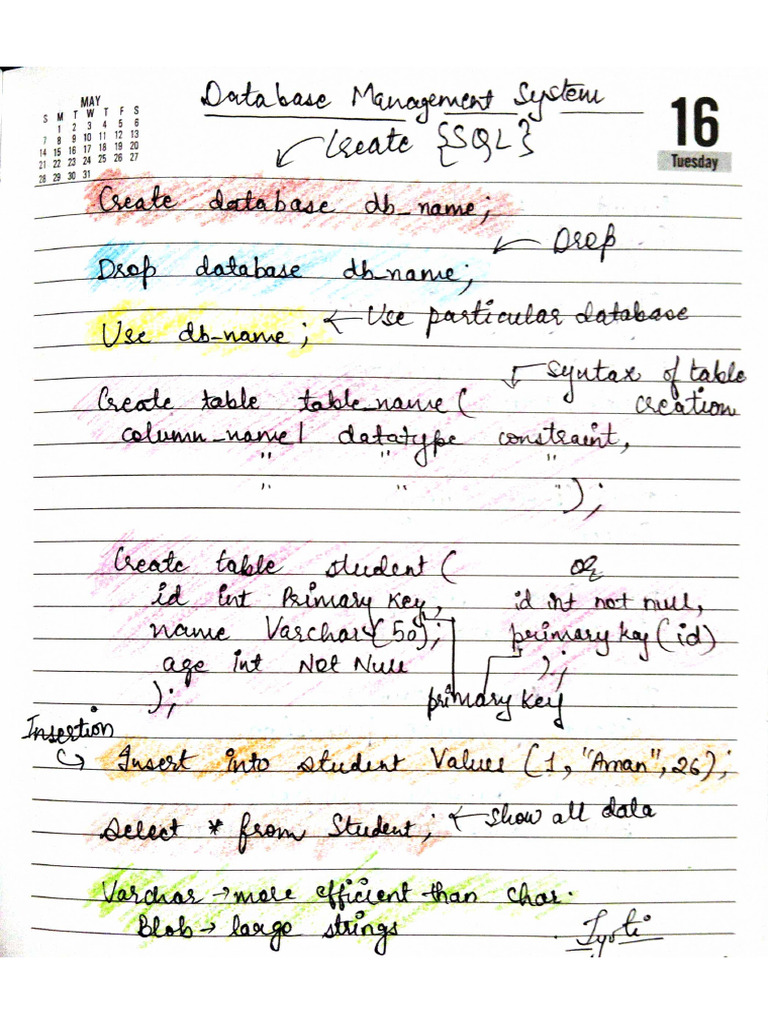 Database Management System
MAY
S M T W T F S
1 2 3 4 5 6
7 8 9 10 11 12 13
14 15 16 17 18 19 20
21 22 23 24 25 26 27
28 29 30 31
16
Tuesday
Create {SQL}
Create database db_name;
Drop
Drop database db_name;
Use db_name; ← Use particular database
Syntax of table
creation
Create table table_name (
column_name1 datatype constraint,
" " "
" " " );
Create table student ( or
id int Primary Key, id int not null,
name Varchar(50); primary key (id)
age int Not Null );
); primary key
Insertion
↪ Insert into student Values (1, "Aman", 26);
Select * from Student; ← Show all data
Varchar → more efficient than char.
Blob → large strings
Jyoti